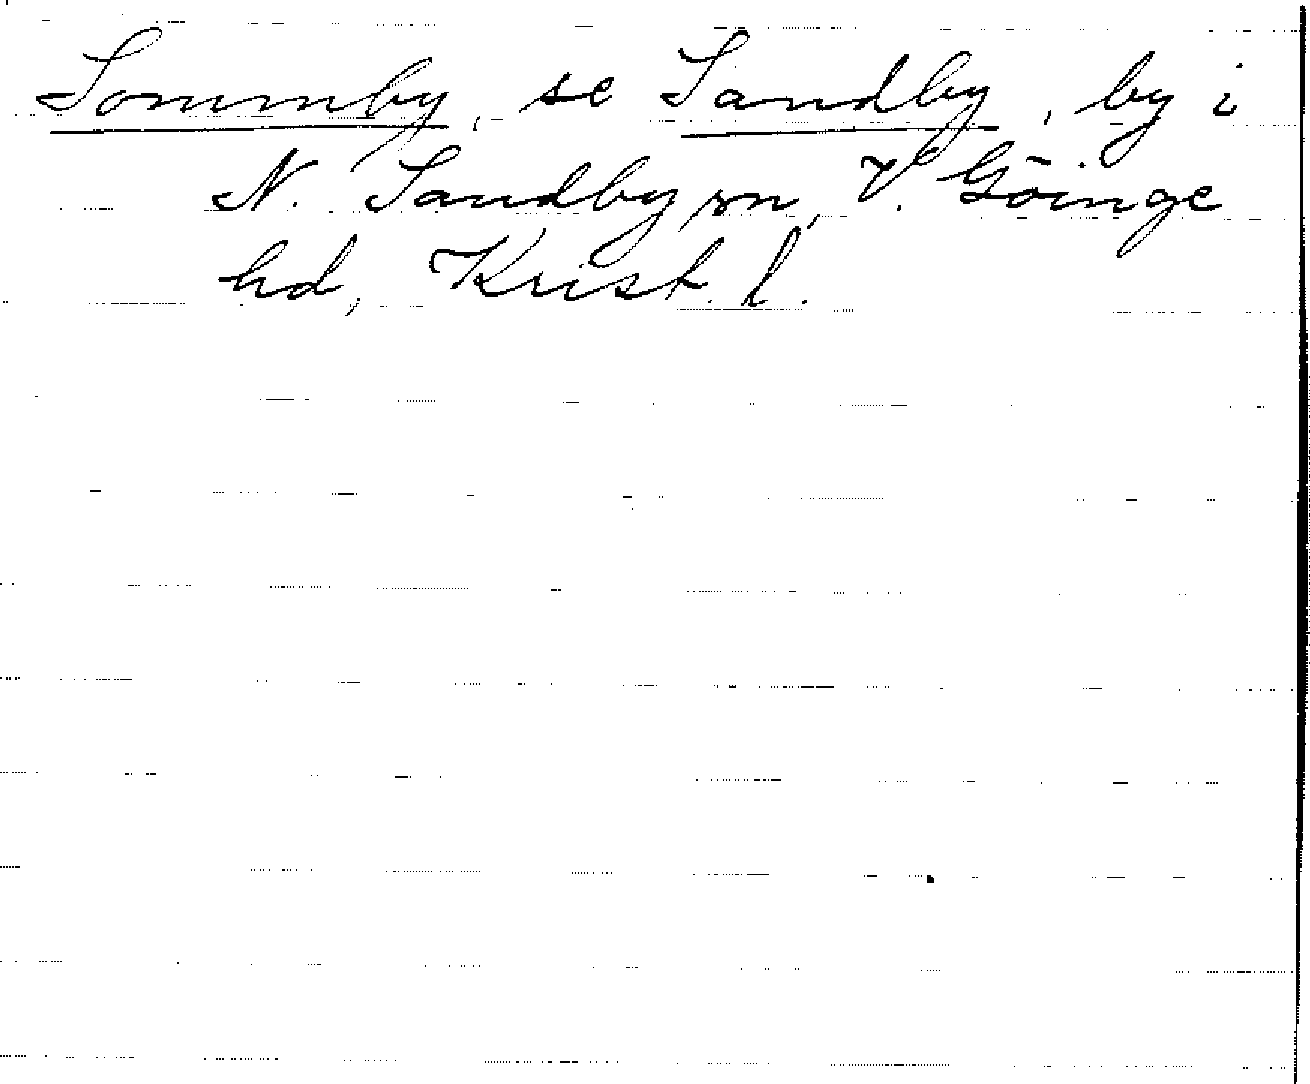 Sommby, se Sandby, by i
N. Sandby sn, V. Göinge
hd, Krist. l.